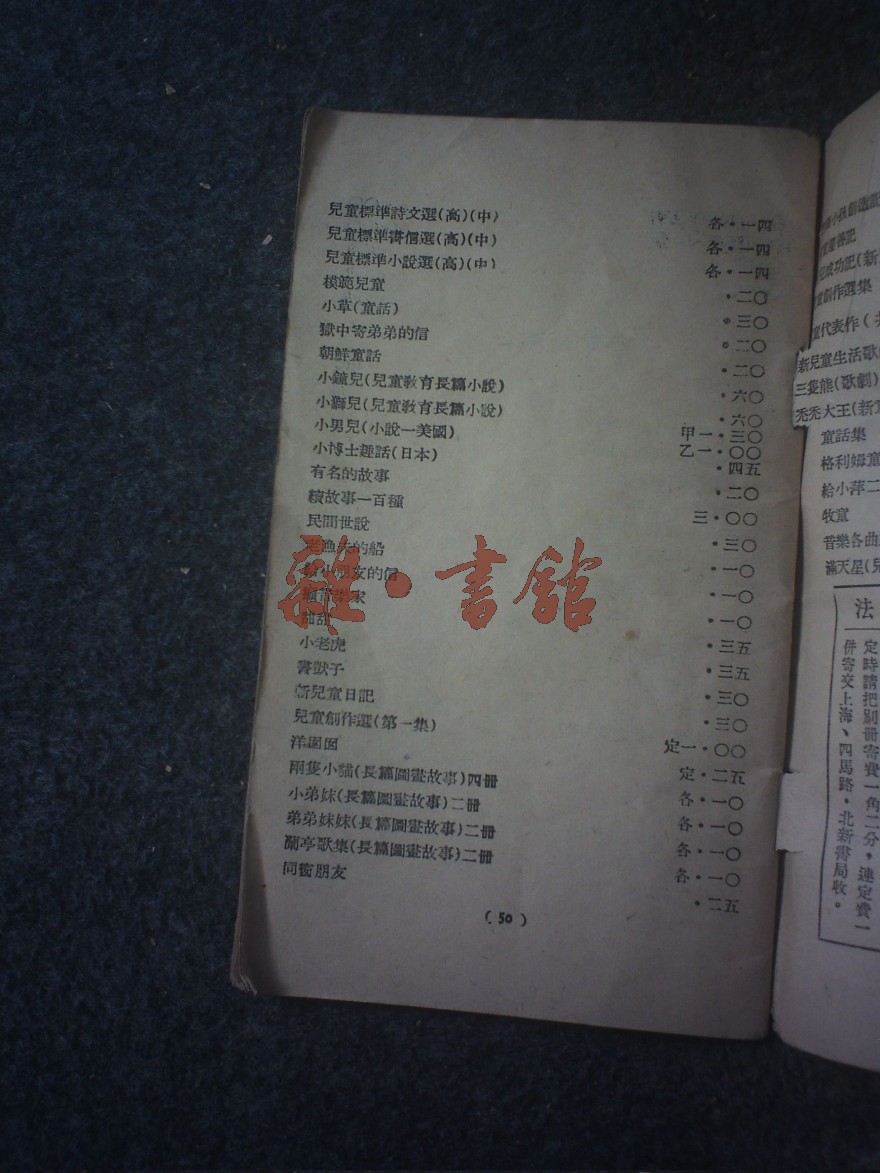 兒童標準詩文選(高)(中) 各·一四
兒童標準書信選(高)(中) 各·一四
兒童標準小說選(高)(中) 各·一四
模範兒童 ·二〇
小草(童話) ·三〇
獄中寄弟弟的信 ·二〇
朝鮮童話 ·二〇
小鐘兒(兒童教育長篇小說) ·六〇
小獅兒(兒童教育長篇小說) ·六〇
小男兒(小說一美國) 甲一·三〇
乙一·〇〇
小博士趣話(日本) ·四五
有名的故事 ·二〇
續故事一百種 三·〇〇
民間世說 ·三〇
漁夫的船 ·一〇
小朋友的信 ·一〇
音樂家 ·一〇
甜甜 ·三五
小老虎 ·三五
書獃子 ·三〇
新兒童日記 ·三〇
兒童創作選(第一集) 定一·〇〇
洋囡囡 定·二五
兩隻小貓(長篇圖畫故事)四冊 各·一〇
小弟妹(長篇圖畫故事)二冊 各·一〇
弟弟妹妹(長篇圖畫故事)二冊 各·一〇
蘭亭歌集(長篇圖畫故事)二冊 各·一〇
同衖朋友 ·二五
(50)
雜·書館
成功記(新
創作選集
童代表作(
新兒童生活歌
三隻熊(歌劇)
禿禿大王(新
童話集
格利姆童
給小萍二
牧童
音樂各曲
滿天星(兒
法
定時請把別冊寄費一角二分，連定費一
併寄交上海、四馬路·北新書局收。